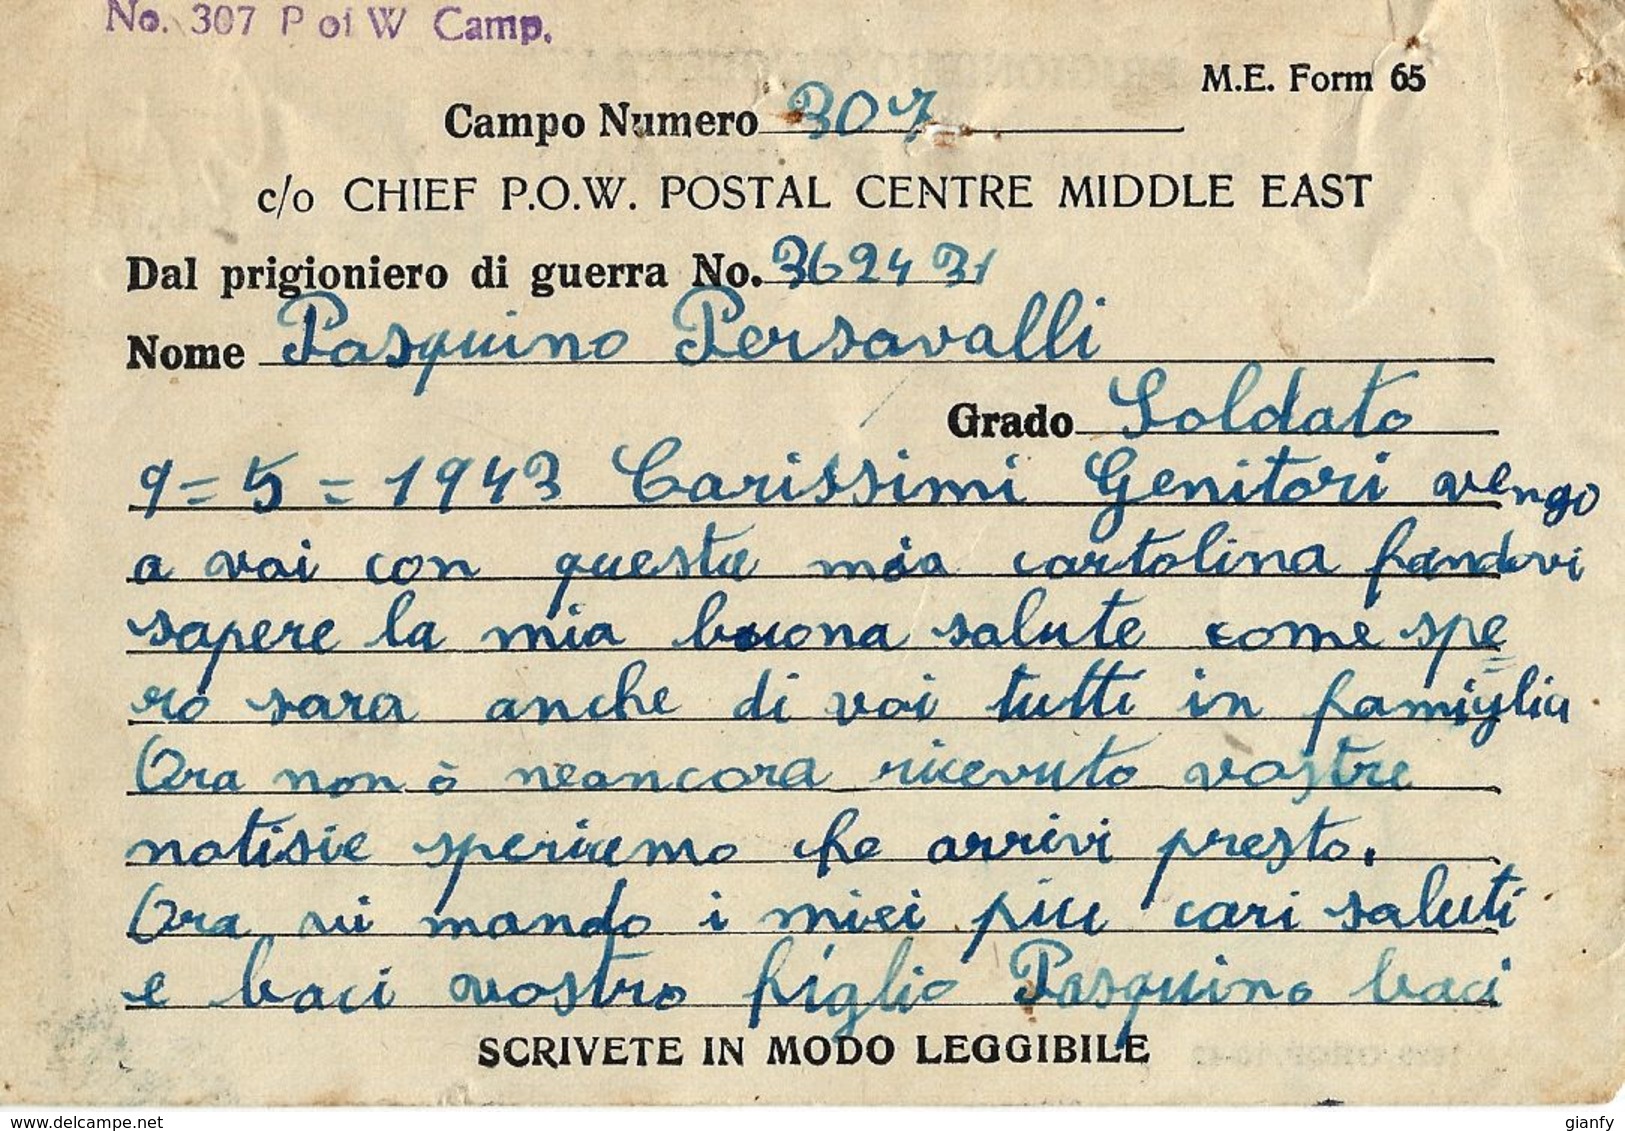 No. 307 P of W Camp.
M.E. Form 65
Campo Numero 307
c/o CHIEF P.O.W. POSTAL CENTRE MIDDLE EAST
Dal prigioniero di guerra No. 362431
Nome Pasquino Persavalli
Grado Soldato
9=5=1943 Carissimi Genitori vengo
a voi con questa mia cartolina fandovi
sapere la mia buona salute come spe=
ro sara anche di voi tutti in famiglia
Ora non ò neancora ricevuto vostre
notisie speriamo che arrivi presto.
Ora vi mando i miei piu cari saluti
e baci vostro figlio Pasquino baci
SCRIVETE IN MODO LEGGIBILE
delcampe.net
gianfy